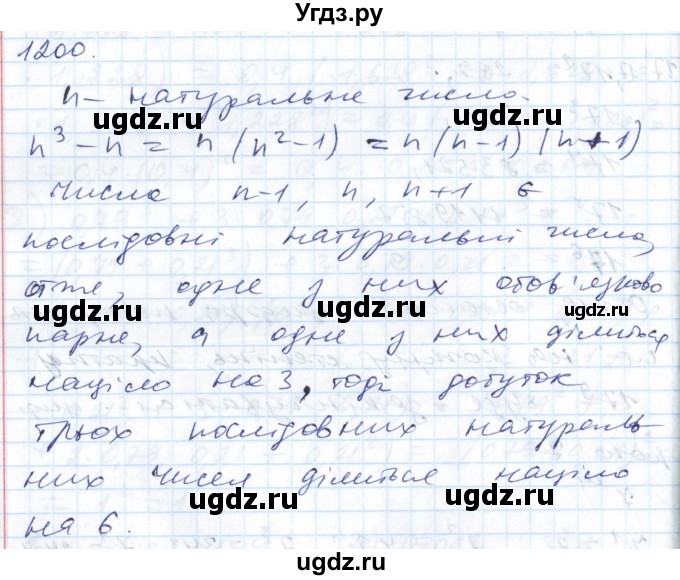 Угdз.ру
1200.
n – натуральне число.
ugdz.ru ugdz.ru
n³ - n = n (n² - 1) = n (n - 1) (n + 1)
Числа n-1, n, n+1 є
ugdz.ru
послідовні натуральні числа,
отже, одне з них обов'язково
ugdz.ru ugdz.ru
парне, а одне з них ділиться
ugdz.ru
націло на 3, тоді добуток
ugdz.ru ugdz.ru
трьох послідовних натураль-
них чисел ділиться націло
ugdz.ru ugdz.ru
на 6.
ugdz.ru